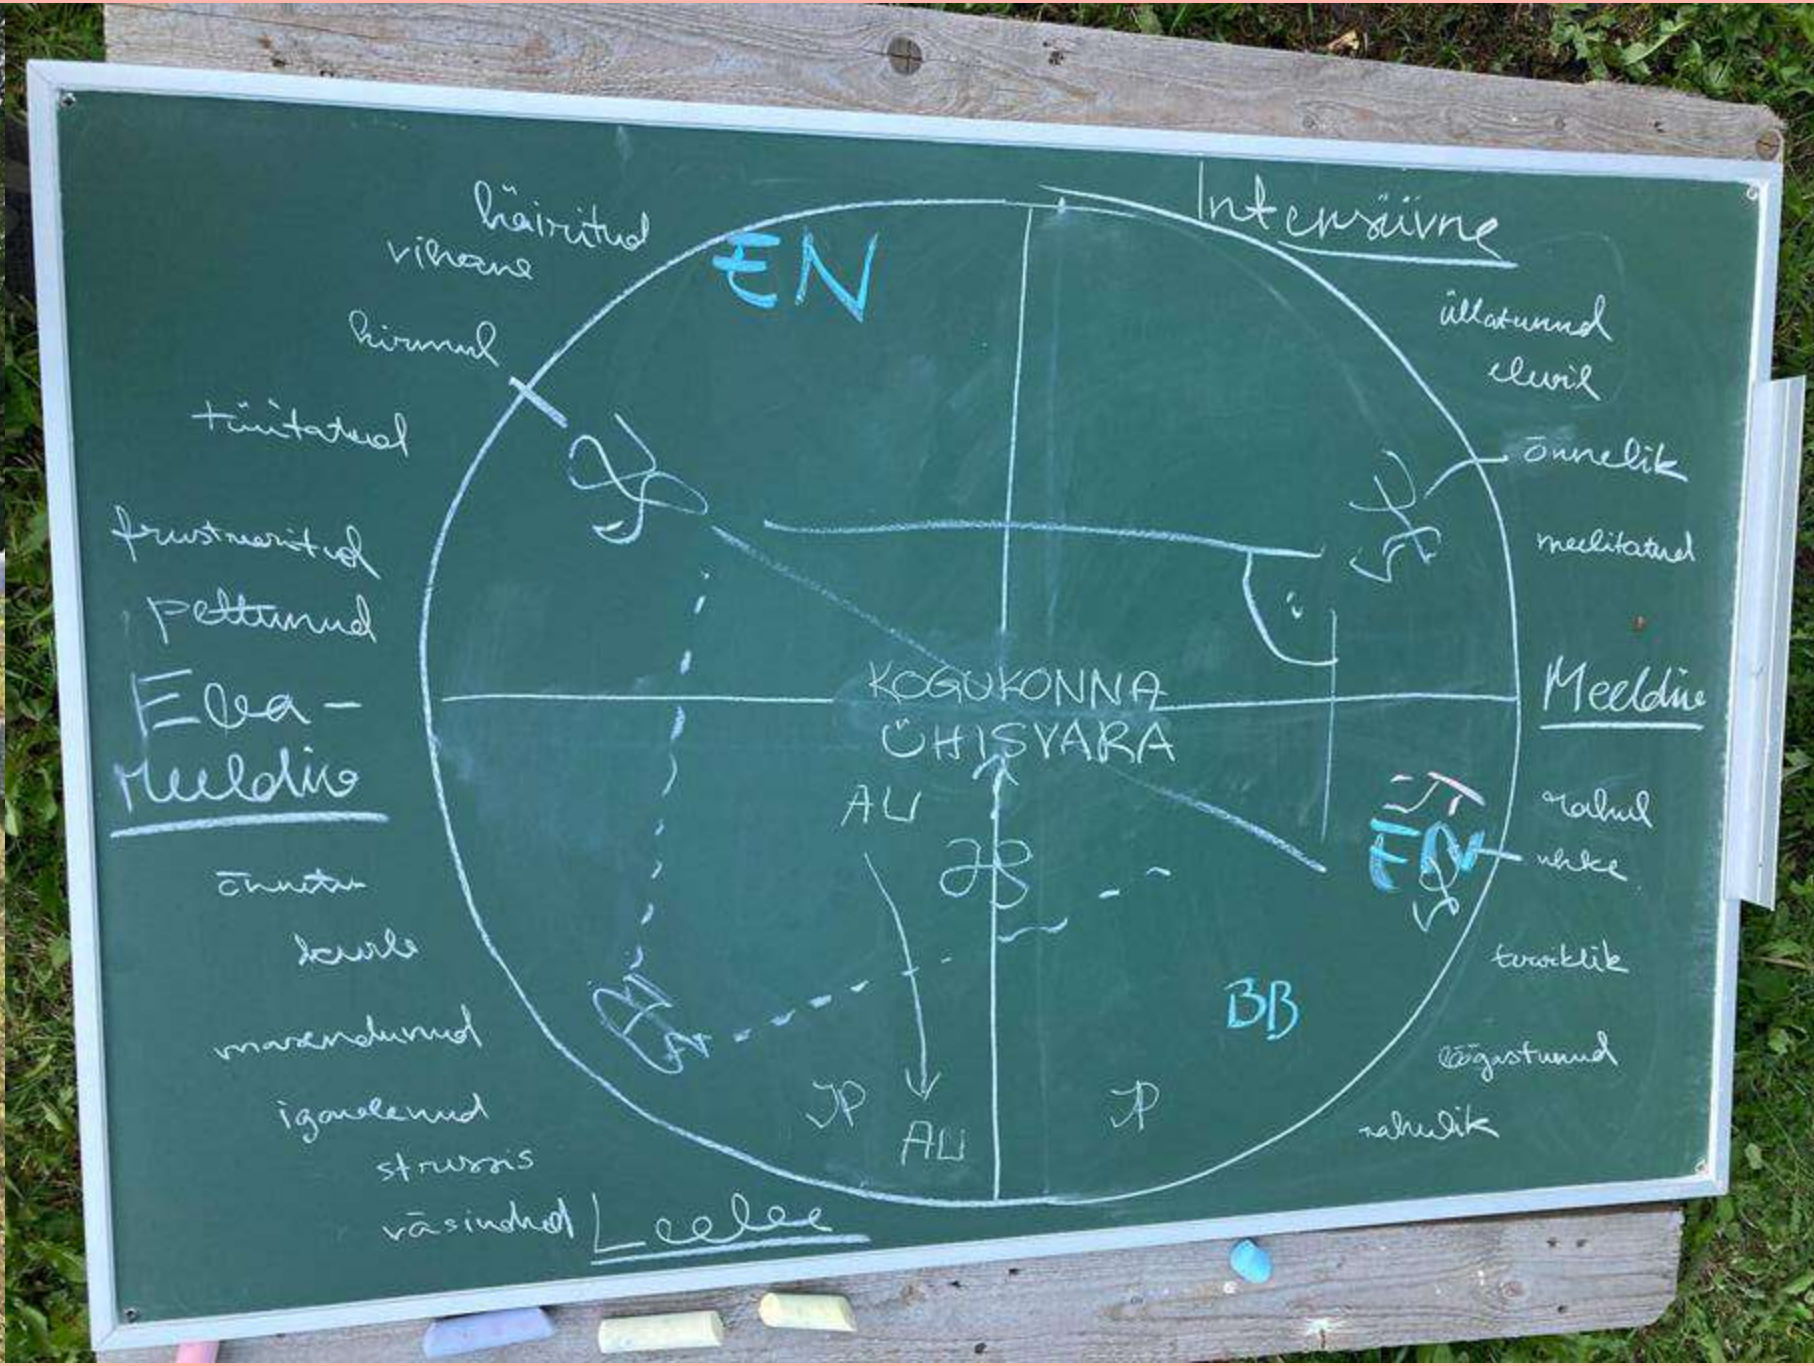 Intensiivne
häiritud
vihane
hirmul
tüütatud
frustreeritud
pettunud
Eba-
meeldiv
õnnetu
kurb
masendunud
igavlenud
stressis
väsinud
Leebe
üllatunud
elevil
õnnelik
meelitatud
Meeldiv
rahul
uhke
lõõgastunud
rahulik
EN
KOGUKONNA
ÜHISVARA
AU
EN
BB
JP
JP
AU